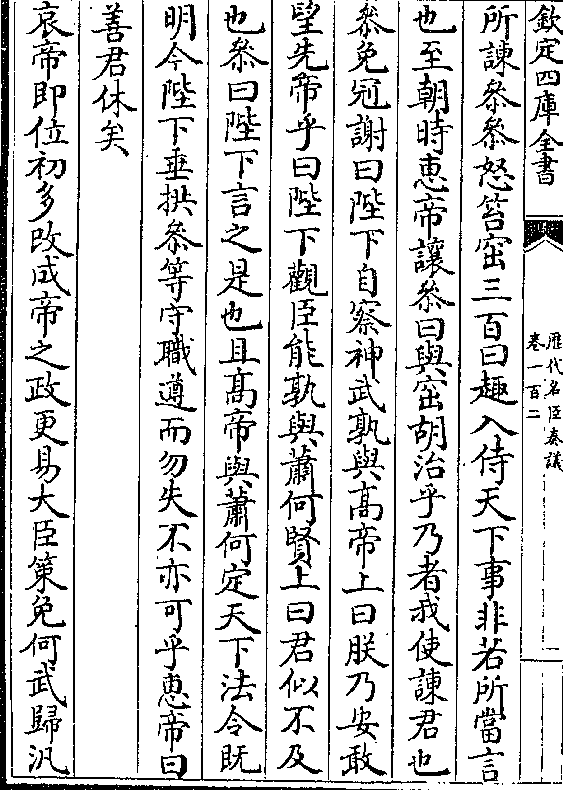 欽定四庫全書
歷代名臣奏議
卷一百二
所諫參參怒笞窋三百曰趣入侍天下事非若所當言
也至朝時惠帝讓參曰與窋胡治乎乃者我使諫君也
參免冠謝曰陛下自察神武孰與髙帝上曰朕乃安敢
望先帝乎曰陛下觀臣能孰與蕭何賢上曰君似不及
也參曰陛下言之是也且髙帝與蕭何定天下法令既
明今陛下垂拱參等守職遵而勿失不亦可乎惠帝曰
善君休矣
哀帝即位初多改成帝之政更易大臣策免何武歸汎